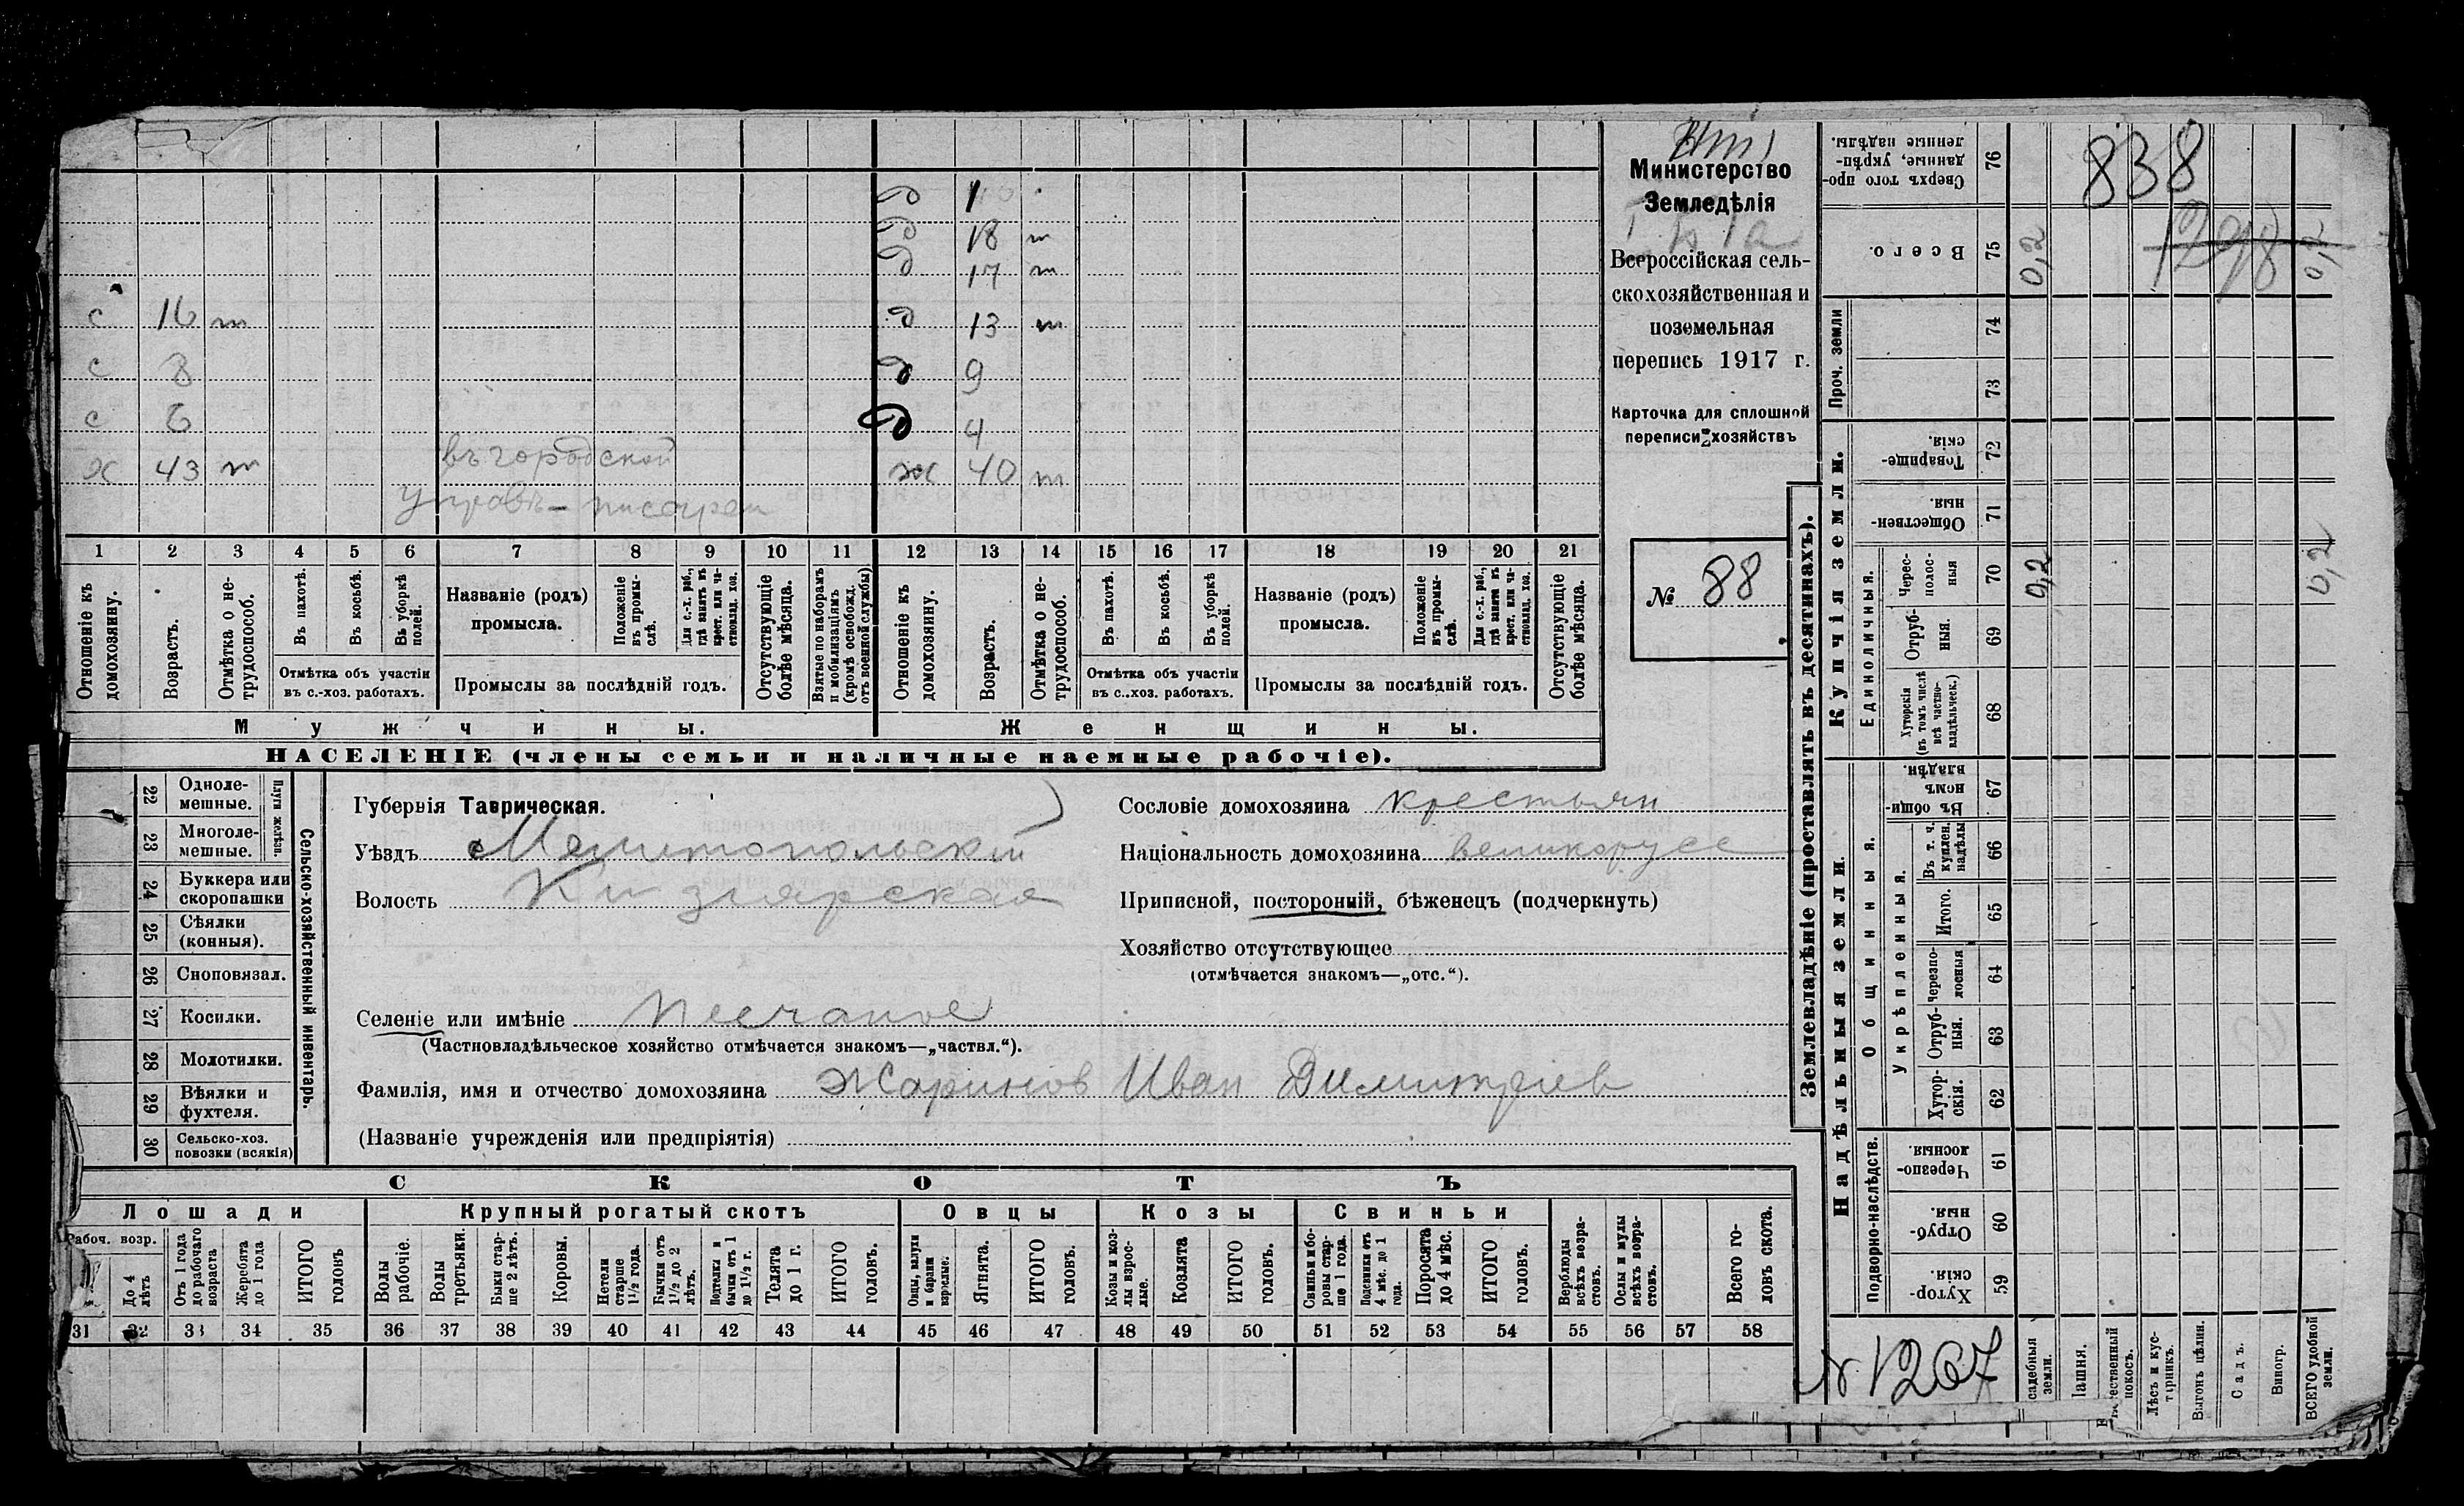 д 1
д 18 т
д 17 т
с 16 т д 13 т
с 8 д 9
с 6 д 4
х 43 т въ городской ж 40 т
управѣ - писарем
1 2 3 4 5 6 7 8 9 10 11 12 13 14 15 16 17 18 19 20 21
Отношеніе къ домохозяину.
Возрастъ.
Отмѣтка о не-трудоспособ.
Въ пахотѣ.
Въ косьбѣ.
Въ уборкѣ полей.
Отмѣтка объ участіи
въ с.-хоз. работахъ.
Названіе (родъ)
промысла.
Положеніе въ промы-слѣ.
Для с.-х. раб., гдѣ занятъ въ крест. или ча-стновлад. хоз.
Промыслы за послѣдній годъ.
Отсутствующіе болѣе мѣсяца.
Взятые по наборамъ и мобилизаціямъ (кромѣ освобожд. отъ военной службы)
Отношеніе къ домохозяину.
Возрастъ.
Отмѣтка о не-трудоспособ.
Въ пахотѣ.
Въ косьбѣ.
Въ уборкѣ полей.
Отмѣтка объ участіи
въ с..хоз. работахъ.
Названіе (родъ)
промысла.
Положеніе въ промы-слѣ.
Для с.-х. раб., гдѣ занята въ крест. или ча-стновлад. хоз.
Промыслы за послѣдній годъ.
Отсутствующіе болѣе мѣсяца.
Мужчины.
Женщины.
НАСЕЛЕНІЕ (члены семьи и наличные наемные рабочіе).
Министерство
Земледѣлія
Всероссійская сель-
скохозяйственная и
поземельная
перепись 1917 г.
Карточка для сплошной
переписи хозяйствъ
№ 88
22 Одноле-
мешные.
23 Многоле-
мешные.
Плуги желѣзн.
24 Буккера или
скоропашки
25 Сѣялки
(конныя).
26 Сноповязал.
27 Косилки.
28 Молотилки.
29 Вѣялки и
фухтеля.
30 Сельско-хоз.
повозки (всякія)
Сельско-хозяйственный инвентарь.
Губернія Таврическая.
Уѣздъ Мелитопольскій
Волость Кизіярская
Селеніе или имѣніе Песчаное
(Частновладѣльческое хозяйство отмѣчается знакомъ—„частвл.“).
Фамилія, имя и отчество домохозяина Жаринов Иван Димитриев
(Названіе учрежденія или предпріятія)
Сословіе домохозяина крестьян
Національность домохозяина великорусс
Приписной, посторонній, бѣженецъ (подчеркнуть)
Хозяйство отсутствующее
(отмѣчается знакомъ—„отс.“).
СКОТЪ
Лошади
Крупный рогатый скотъ
Овцы
Козы
Свиньи
Рабоч. возр.
До 4 лѣтъ
Отъ 1 года до рабочаго возраста
Жеребята до 1 года
ИТОГО головъ
Волы рабочіе.
Волы третьяки.
Быки стар-ше 2 лѣтъ.
Коровы.
Нетели старше 1½ года.
Бычки отъ 1½ до 2 лѣтъ.
Подтелки и бычки отъ 1 до 1½ г.
Телята до 1 г.
ИТОГО головъ.
Овцы, валухи и бараны взрослые.
Ягнята.
ИТОГО головъ.
Козы и коз-лы взрос-лые.
Козлята
ИТОГО головъ.
Свиньи и бо-ровы стар-ше 1 года.
Подсвинки отъ 4 мѣс. до 1 года.
Поросята до 4 мѣс.
ИТОГО головъ.
Верблюды всѣхъ возра-стовъ.
Ослы и мулы всѣхъ возра-стовъ.
Всего го-ловъ скота.
31 32 33 34 35 36 37 38 39 40 41 42 43 44 45 46 47 48 49 50 51 52 53 54 55 56 57 58
Землевладѣніе (проставлять въ десятинахъ).
Сверхъ того про-данные, укрѣп-ленные надѣлы. 76
838
Всего. 75 0,2 1298 0,2
Проч. земли 74
73
Купчія земли.
Товарище-скія. 72
Обществен-ныя. 71
Единоличныя.
Черес-полос-ныя 70 0,2 0,2
Отруб-ныя. 69
Хуторскія (въ томъ числѣ всѣ частно-владѣльческ.) 68
Надѣльныя земли.
Общинныя.
Въ общи-номъ владѣн. 67
Укрѣпленныя.
Въ т. ч. куплен. надѣлы 66
Итого. 65
Черезпо-лосныя 64
Отруб-ныя. 63
Хутор-скія. 62
Подворно-наслѣдств.
Черезпо-лосныя 61
Отруб-ныя. 60
Хутор-скія. 59
№ 1267
садебныя земли.
Пашня.
ественный покосъ.
Лѣсъ и кус-тарникъ.
Выгонъ цѣлин.
Садъ.
Виногр.
ВСЕГО удобной земли.